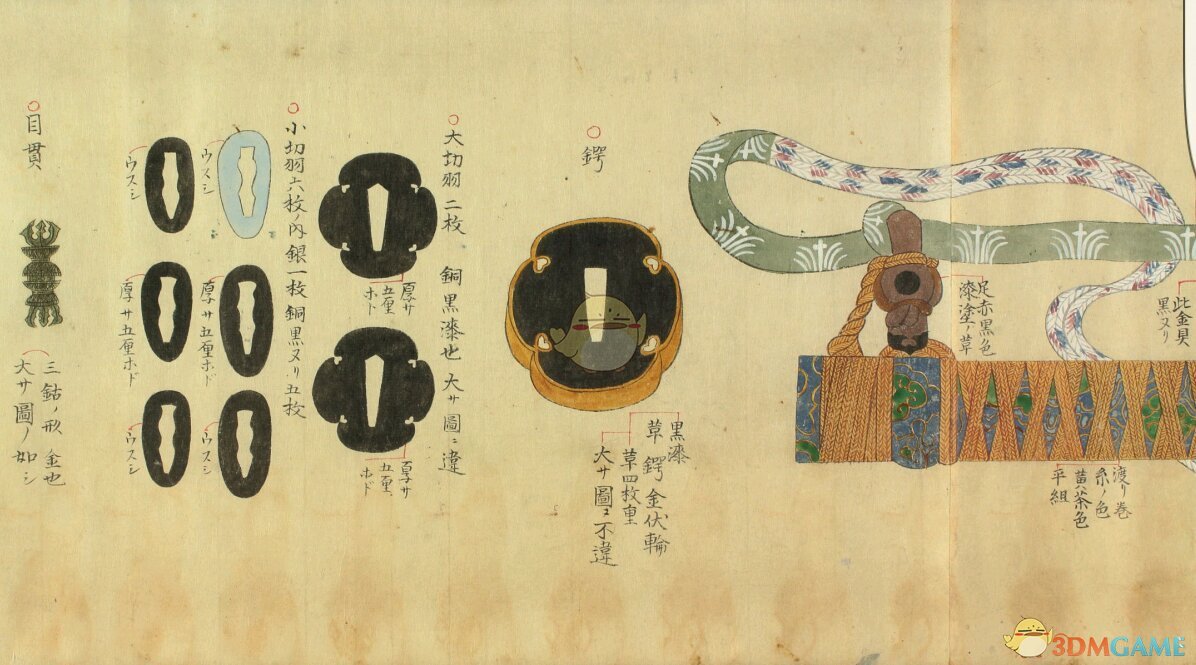 此金貝
黒ヌリ
足赤黒色
漆塗ノ革
渡リ巻
糸ノ色
黄茶色
平組
○
鍔
黒漆
革鍔金伏輪
革四枚重
大サ圖ニ不違
○
大切羽二枚 銅黒漆也 大サ圖ニ違
厚サ
五厘
ホド
厚サ
五厘
ホド
○
小切羽六枚ノ内銀一枚銅黒ヌリ五枚
ウスシ
厚サ五厘ホド
ウスシ
ウスシ
厚サ五厘ホド
ウスシ
○
目貫
三鈷ノ形 金也
大サ圖ノ如シ
3DMGAME